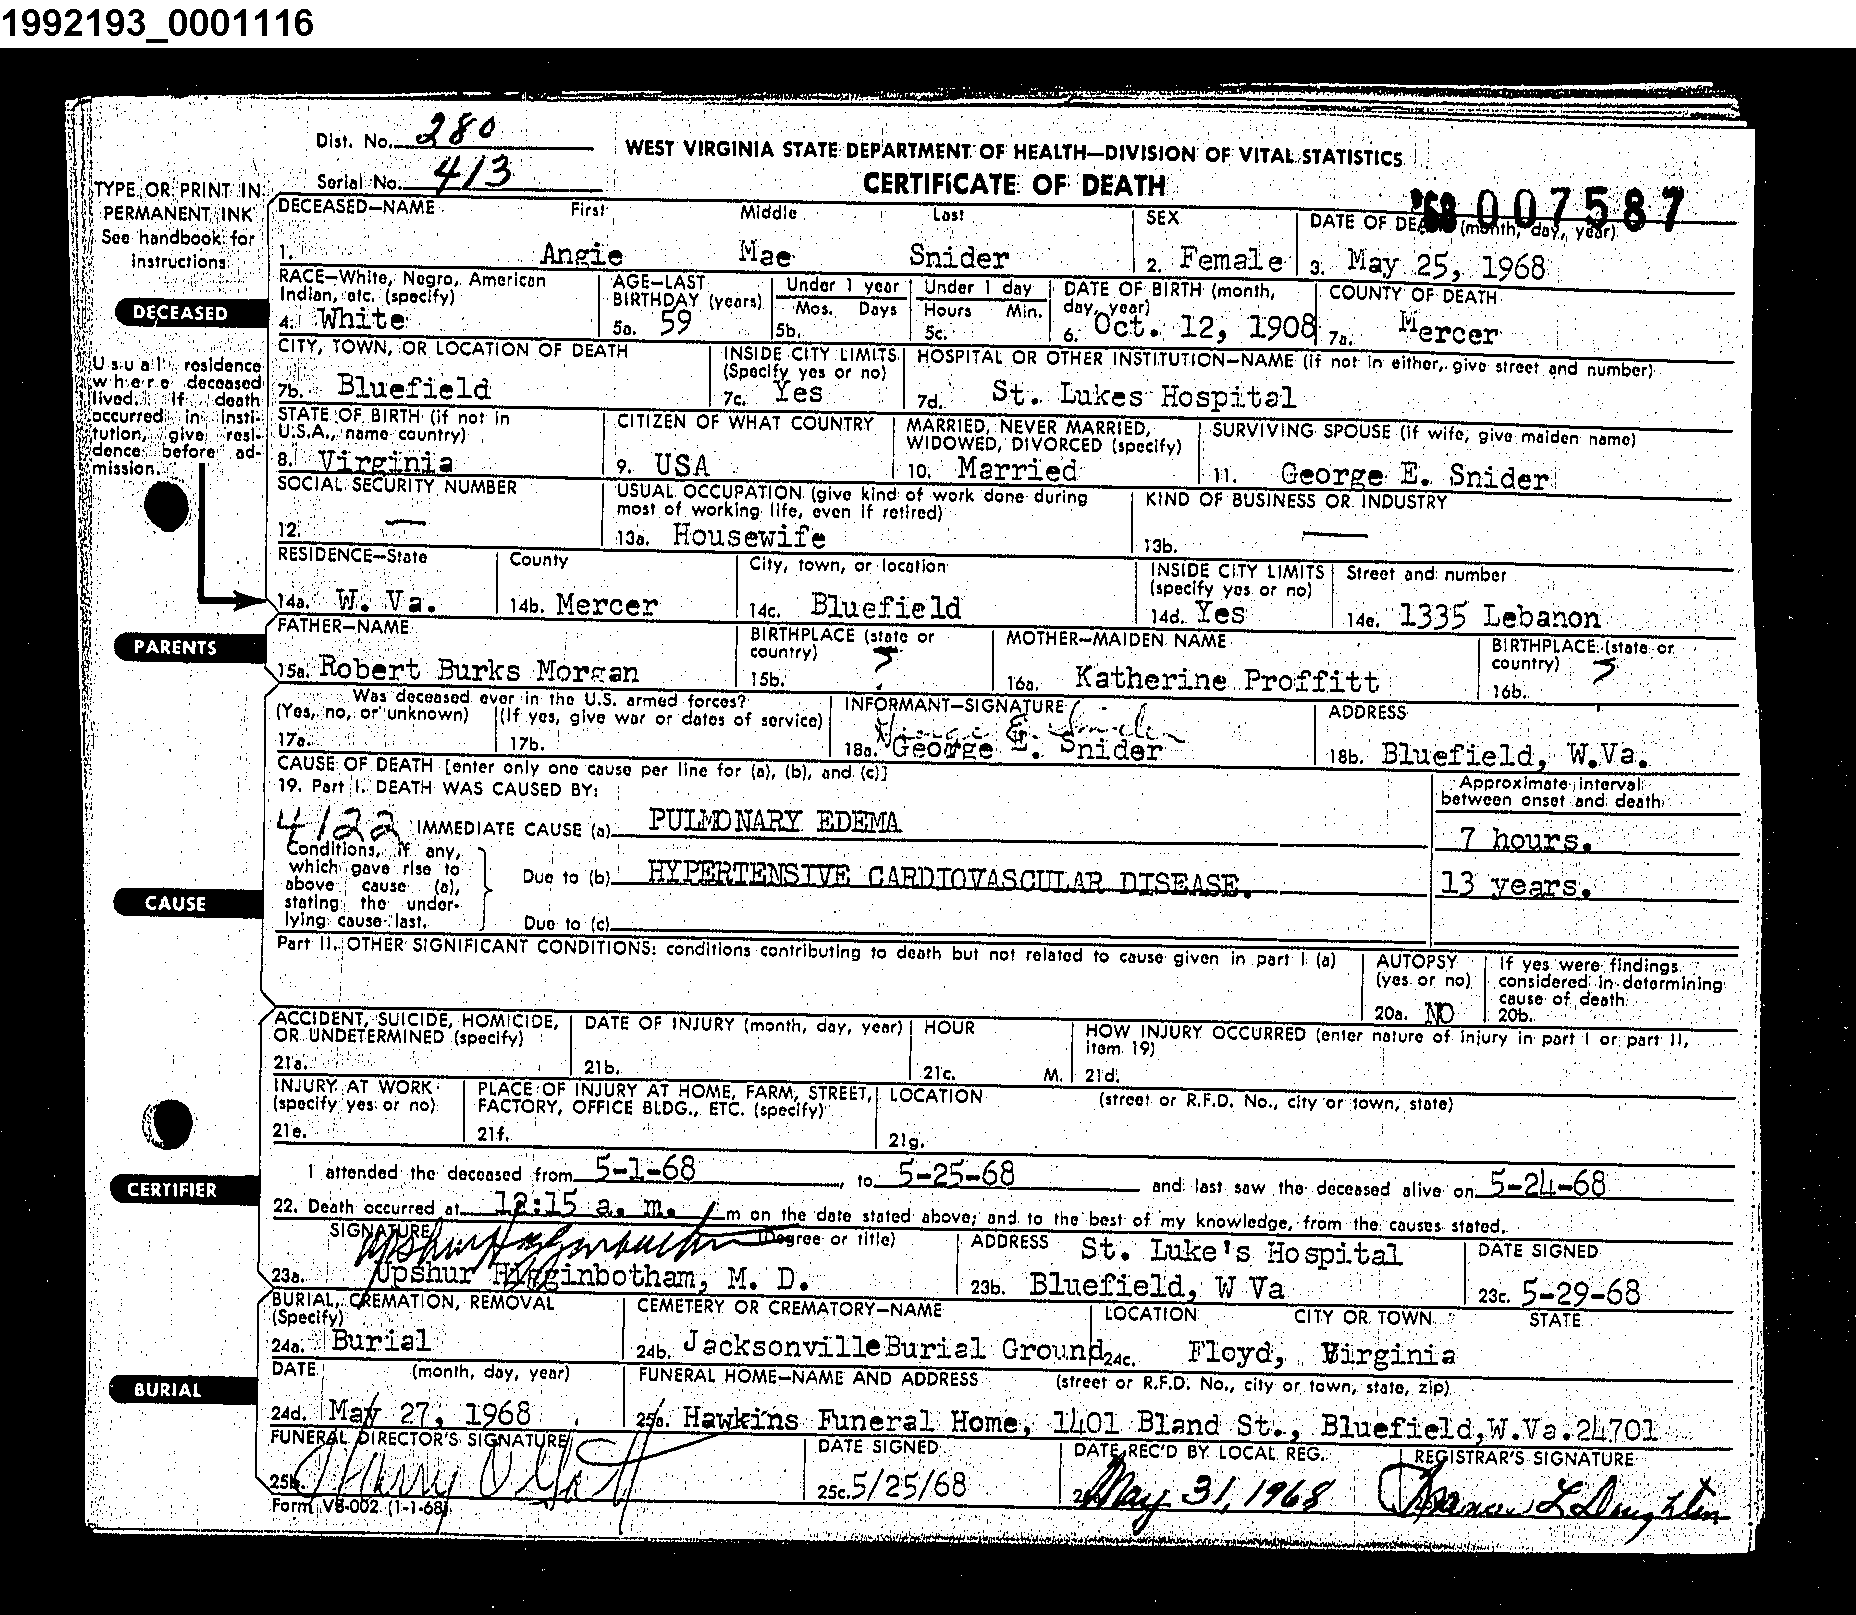 1992193_0001116
Dist. No. 280
Serial No. 413
WEST VIRGINIA STATE DEPARTMENT OF HEALTH—DIVISION OF VITAL STATISTICS
CERTIFICATE OF DEATH
'68 007587
TYPE OR PRINT IN
PERMANENT INK
See handbook for
instructions
DECEASED—NAME First Middle Last
1. Angie Mae Snider
SEX
2. Female
DATE OF DEATH (month, day, year)
3. May 25, 1968
DECEASED
RACE—White, Negro, American
Indian, etc. (specify)
4. White
AGE—LAST
BIRTHDAY (years)
5a. 59
Under 1 year
Mos. Days
5b.
Under 1 day
Hours Min.
5c.
DATE OF BIRTH (month,
day, year)
6. Oct. 12, 1908
COUNTY OF DEATH
7a. Mercer
Usual residence
where deceased
lived. If death
occurred in insti-
tution, give resi-
dence before ad-
mission.
CITY, TOWN, OR LOCATION OF DEATH
7b. Bluefield
INSIDE CITY LIMITS
(Specify yes or no)
7c. Yes
HOSPITAL OR OTHER INSTITUTION—NAME (if not in either, give street and number)
7d. St. Lukes Hospital
STATE OF BIRTH (if not in
U.S.A., name country)
8. Virginia
CITIZEN OF WHAT COUNTRY
9. USA
MARRIED, NEVER MARRIED,
WIDOWED, DIVORCED (specify)
10. Married
SURVIVING SPOUSE (if wife, give maiden name)
11. George E. Snider
SOCIAL SECURITY NUMBER
12. —
USUAL OCCUPATION (give kind of work done during
most of working life, even if retired)
13a. Housewife
KIND OF BUSINESS OR INDUSTRY
13b. —
RESIDENCE—State
14a. W. Va.
County
14b. Mercer
City, town, or location
14c. Bluefield
INSIDE CITY LIMITS
(specify yes or no)
14d. Yes
Street and number
14e. 1335 Lebanon
PARENTS
FATHER—NAME
15a. Robert Burks Morgan
BIRTHPLACE (state or
country) ?
15b.
MOTHER—MAIDEN NAME
16a. Katherine Proffitt
BIRTHPLACE (state or
country) ?
16b.
Was deceased ever in the U.S. armed forces?
(Yes, no, or unknown) (If yes, give war or dates of service)
17a. 17b.
INFORMANT—SIGNATURE
George E. Snider
18a. George E. Snider
ADDRESS
18b. Bluefield, W.Va.
CAUSE
CAUSE OF DEATH [enter only one cause per line for (a), (b), and (c)]
19. Part I. DEATH WAS CAUSED BY:
Approximate interval
between onset and death
4122 IMMEDIATE CAUSE (a) PULMONARY EDEMA 7 hours.
Conditions, if any,
which gave rise to
above cause (a),
stating the under-
lying cause last.
Due to (b) HYPERTENSIVE CARDIOVASCULAR DISEASE. 13 years.
Due to (c)
Part II. OTHER SIGNIFICANT CONDITIONS: conditions contributing to death but not related to cause given in part I (a)
AUTOPSY
(yes or no)
20a. NO
If yes were findings
considered in determining
cause of death
20b.
ACCIDENT, SUICIDE, HOMICIDE,
OR UNDETERMINED (specify)
21a.
DATE OF INJURY (month, day, year)
21b.
HOUR
21c. M.
HOW INJURY OCCURRED (enter nature of injury in part I or part II,
item 19)
21d.
INJURY AT WORK
(specify yes or no)
21e.
PLACE OF INJURY AT HOME, FARM, STREET,
FACTORY, OFFICE BLDG., ETC. (specify)
21f.
LOCATION (street or R.F.D. No., city or town, state)
21g.
CERTIFIER
I attended the deceased from 5-1-68, to 5-25-68 and last saw the deceased alive on 5-24-68
22. Death occurred at 12:15 a. m. m on the date stated above; and to the best of my knowledge, from the causes stated.
SIGNATURE (Degree or title)
Upshur Higginbotham
23a. Upshur Higginbotham, M. D.
ADDRESS St. Luke's Hospital
23b. Bluefield, W Va
DATE SIGNED
23c. 5-29-68
BURIAL
BURIAL, CREMATION, REMOVAL
(Specify)
24a. Burial
CEMETERY OR CREMATORY—NAME
24b. Jacksonville Burial Ground
LOCATION CITY OR TOWN STATE
24c. Floyd, Virginia
DATE (month, day, year)
24d. May 27, 1968
FUNERAL HOME—NAME AND ADDRESS (street or R.F.D. No., city or town, state, zip)
25a. Hawkins Funeral Home, 1401 Bland St., Bluefield,W.Va.24701
FUNERAL DIRECTOR'S SIGNATURE
25b. Harry
DATE SIGNED
25c. 5/25/68
DATE REC'D BY LOCAL REG.
May 31, 1968
REGISTRAR'S SIGNATURE
Form VS-002 (1-1-68)